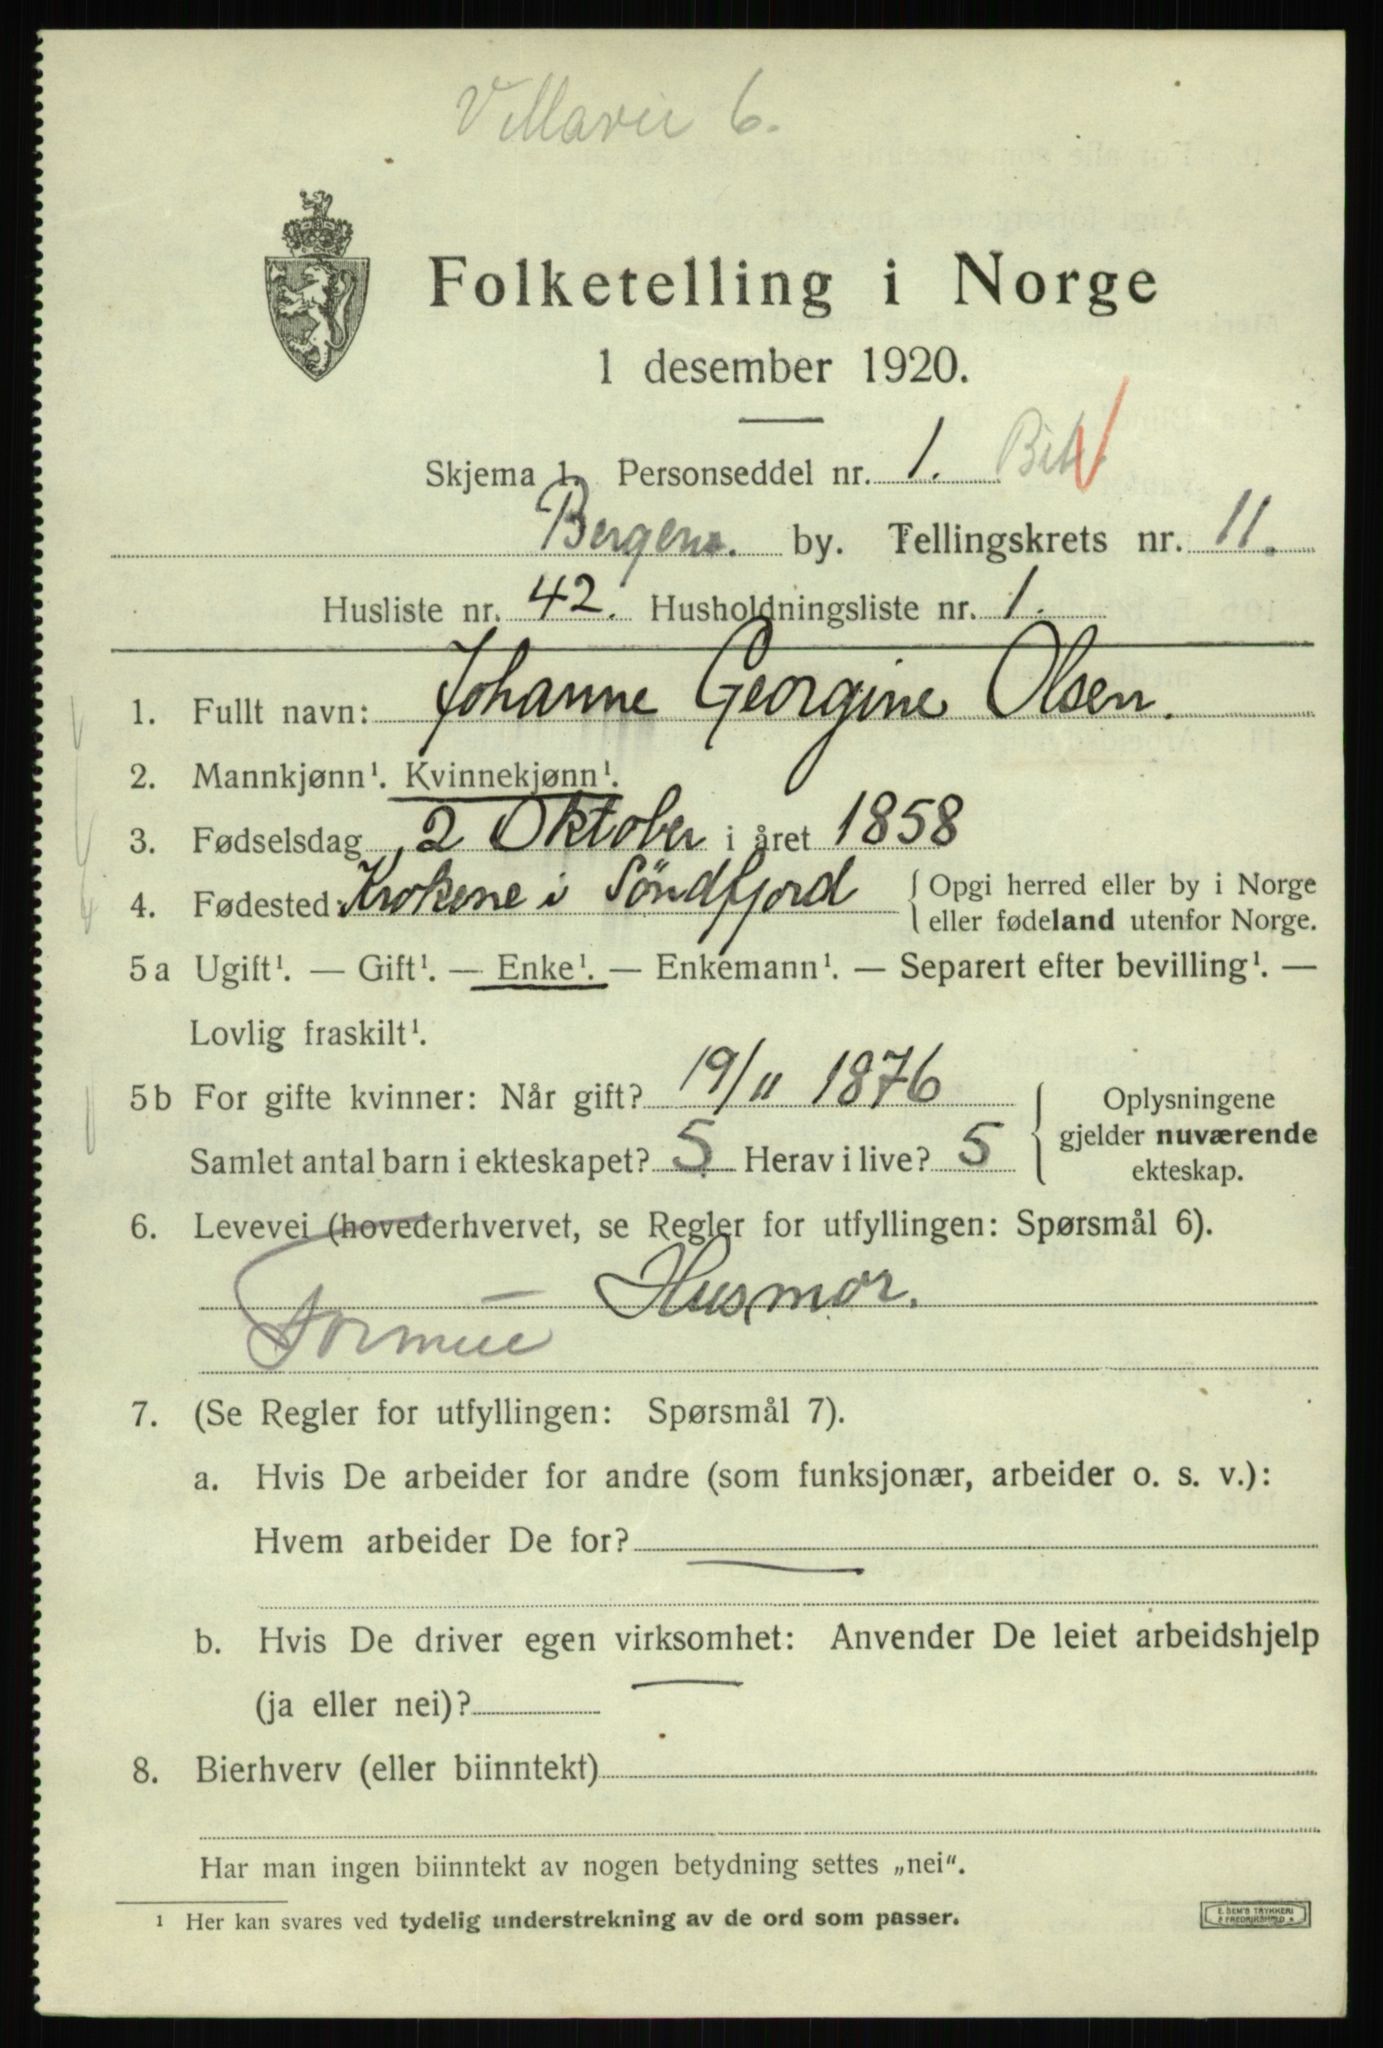 Villavei 6.
Folketelling i Norge
1 desember 1920.
Skjema 1. Personseddel nr. 1.
Bergens. by. Tellingskrets nr. 11.
Husliste nr. 42. Husholdningsliste nr. 1.
1. Fullt navn: Johanne Georgine Olsen.
2. Mannkjønn¹. Kvinnekjønn¹.
3. Fødselsdag 2 Oktober i året 1858
4. Fødested Krokene i Söndfjord { Opgi herred eller by i Norge
eller fødeland utenfor Norge.
5 a Ugift¹. — Gift¹. — Enke¹. — Enkemann¹. — Separert efter bevilling¹. —
Lovlig fraskilt¹.
5 b For gifte kvinner: Når gift? 19/11 1876
Samlet antal barn i ekteskapet? 5 Herav i live? 5
{ Oplysningene
gjelder nuværende
ekteskap.
6. Levevei (hovederhvervet, se Regler for utfyllingen: Spørsmål 6).
Husmor.
Formue
7. (Se Regler for utfyllingen: Spørsmål 7).
a. Hvis De arbeider for andre (som funksjonær, arbeider o. s. v.):
Hvem arbeider De for? —
b. Hvis De driver egen virksomhet: Anvender De leiet arbeidshjelp
(ja eller nei)? —
8. Bierhverv (eller biinntekt)
Har man ingen biinntekt av nogen betydning settes „nei“.
¹ Her kan svares ved tydelig understrekning av de ord som passer.
E. SEM'S TRYKKERI
FREDRIKSHALD